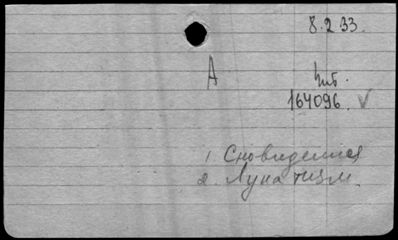 8.2.33.
А
Инв.
164096. V
1. Сновидения
2. Лунатизм.